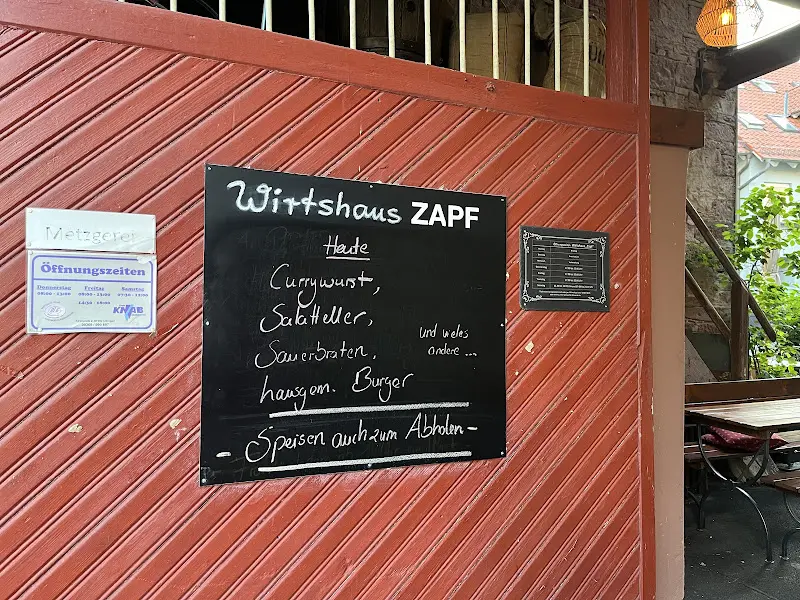 Metzgerei
Öffnungszeiten
Donnerstag Freitag Samstag
08:00 - 13:00 08:00 - 13:00 07:30 - 12:00
14:30 - 18:00
KNAB
Wirtshaus ZAPF
Heute
Currywurst,
Salatteller,
Sauerbraten,
und vieles
andere ...
hausgem. Burger
- Speisen auch zum Abholen -